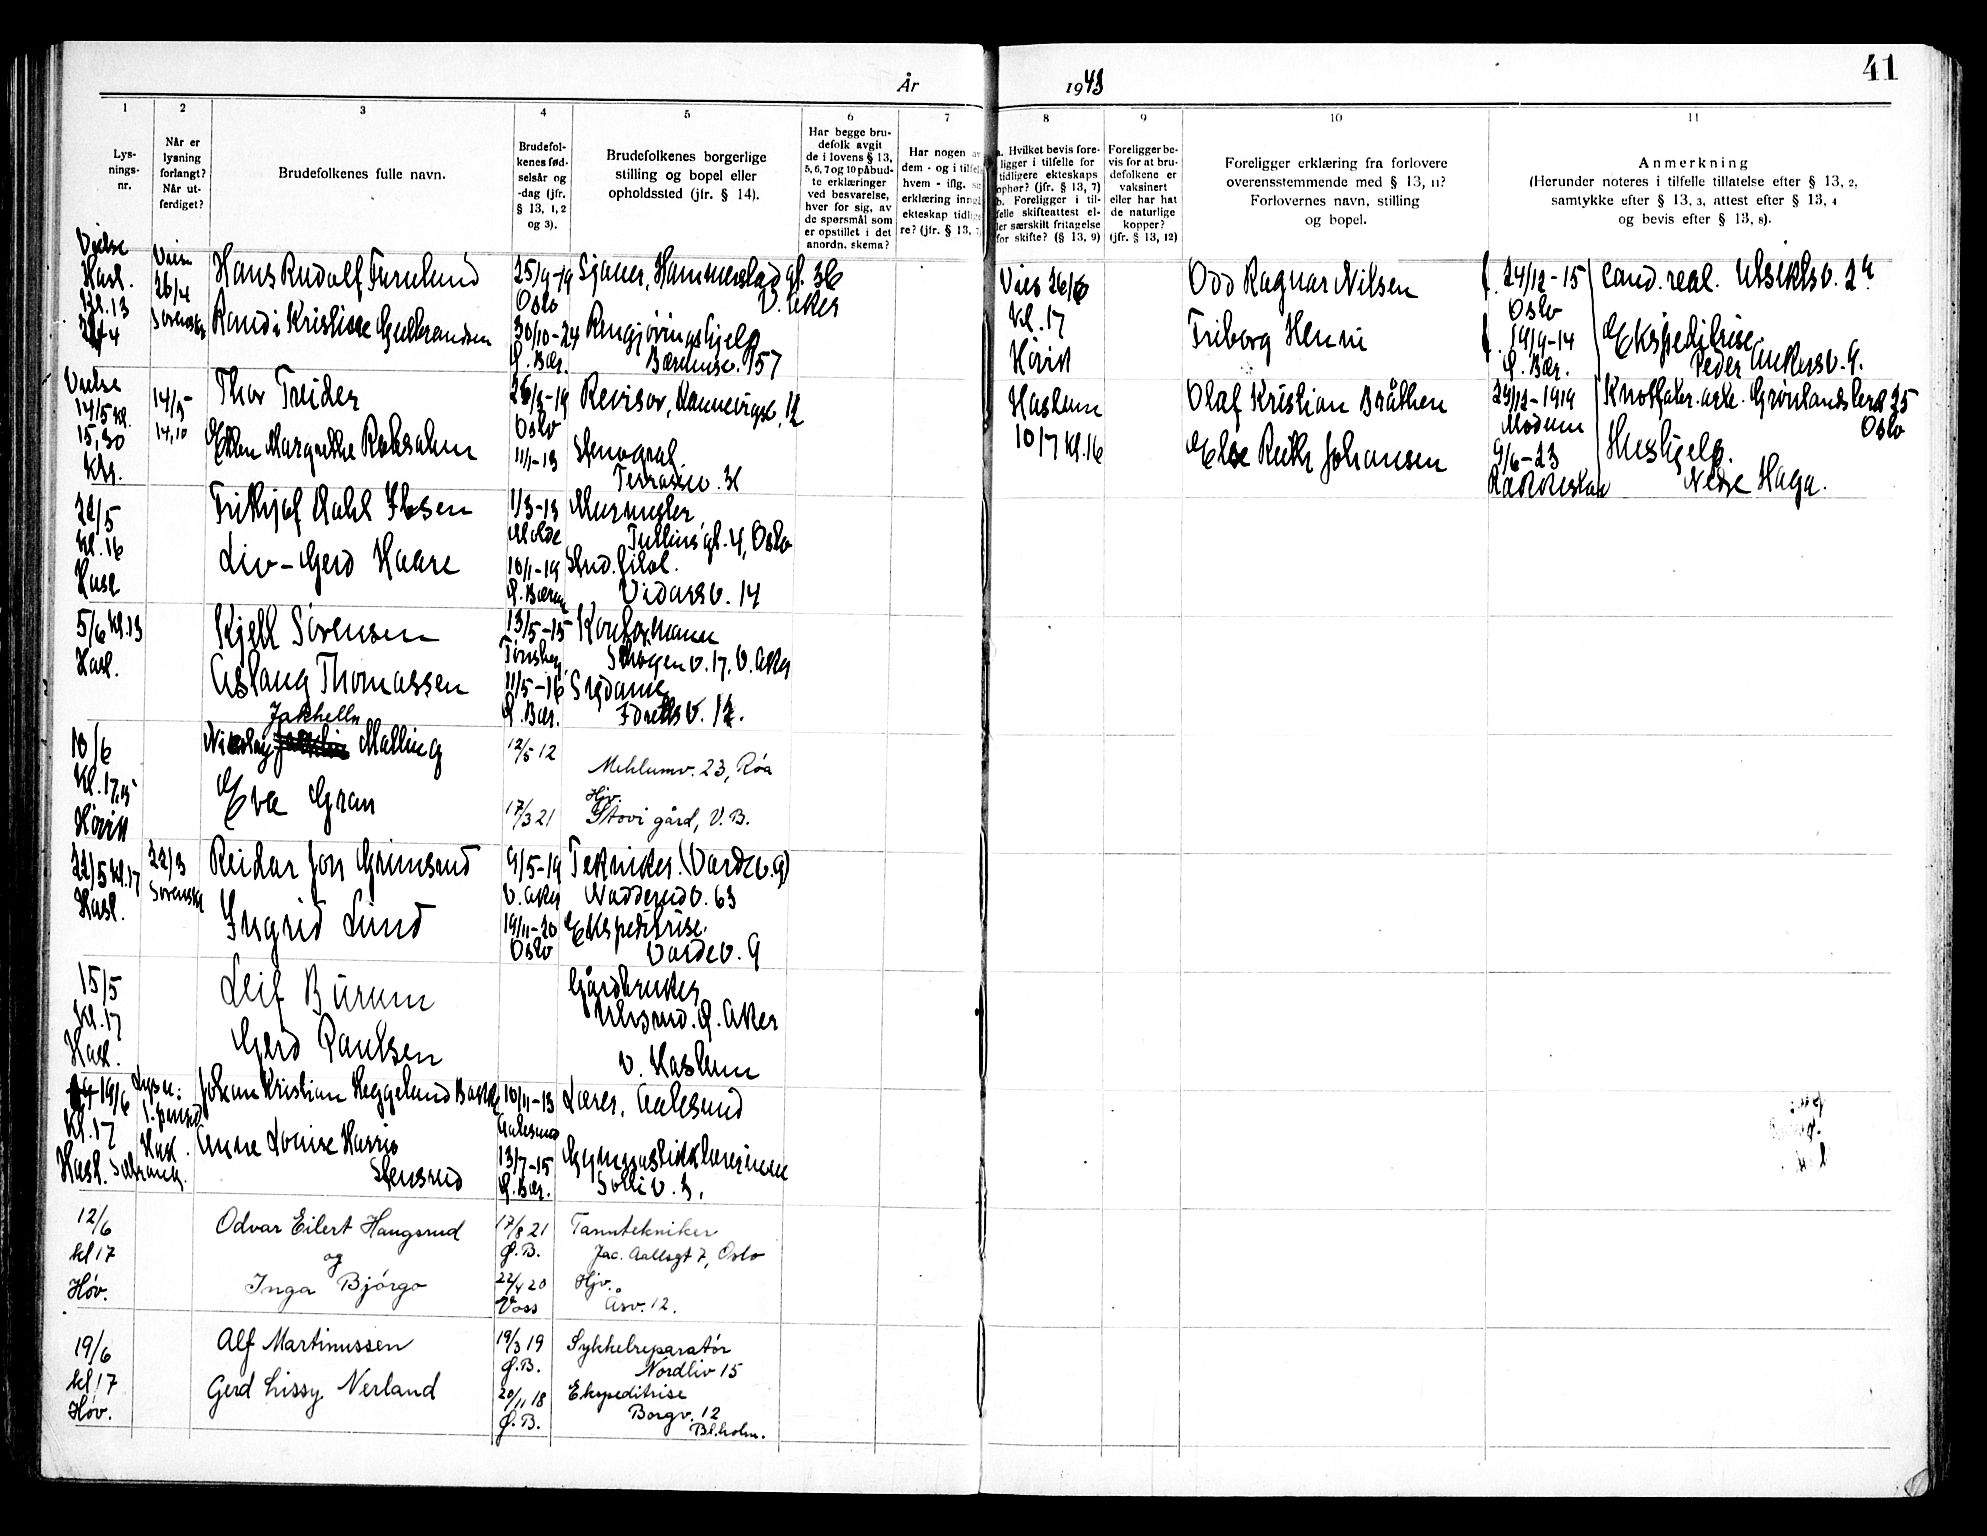 41
År 1943
1
2
3
4
5
6
7
8
9
10
11
Lys-
nings-
nr.
Når er
lysning
forlangt?
Når ut-
ferdiget?
Brudefolkenes fulle navn.
Brudefol-
kenes fød-
selsår og
-dag (jfr.
§ 13, 1, 2
og 3).
Brudefolkenes borgerlige
stilling og bopel eller
opholdssted (jfr. § 14).
Har begge bru-
defolk avgit
de i lovens § 13,
5, 6, 7 og 10 påbud-
te erklæringer
ved besvarelse,
hver for sig, av
de spørsmål som
er opstillet i det
anordn. skema?
Har nogen av
dem - og i tilfelle
hvem - iflg.
erklæring inng
ekteskap tidlige
re? (jfr. § 13,
a. Hvilket bevis fore-
ligger i tilfelle for
tidligere ekteskaps
ophør? (jfr. § 13, 7)
b. Foreligger i til-
felle skifteattest el-
ler særskilt fritagelse
for skifte? (§ 13, 9)
Foreligger be-
vis for at bru-
defolkene er
vaksinert
eller har hat
de naturlige
kopper?
(jfr. § 13, 12)
Foreligger erklæring fra forlovere
overensstemmende med § 13, 11?
Forlovernes navn, stilling
og bopel.
Anmerkning
(Herunder noteres i tilfelle tillatelse efter § 13, 2,
samtykke efter § 13, 3, attest efter § 13, 4
og bevis efter § 13, 8).
Vielse
Hasl.
Kl. 13
26/4
Sørensen
Hans Rudolf Furulund
25/9-19
Oslo
Sjauer, Hammerstad gt. 36
V. Aker
Randi Kristine Gulbrandsen
30/10-24
Ø. Bær.
Rengjøringshjelp
Bærumsv. 157
Vielse
14/5 kl.
15,30
14/5
14,10
Thor Treider
26/3-19
Oslo
Revisor, Kannevigst. 12
Ellen Margrethe Roksahm
11/1-13
Stenograf.
Terrassev. 36
22/5
Kl. 16
Hasl
Frithjof Dahl Ibsen
1/3-13
Molde
Murmester,
Tullins gt. 4, Oslo
Liv-Gerd Haare
10/1-19
Ø. Bærum
Stud. filol.
Vidarsv. 14
5/6 Kl. 13
Hasl.
Kjell Sørensen
13/5-15
Tønsberg
Kontormann
Skogen v. 17, V. Aker
Aslaug Thomassen
11/5-16
Ø. Bær.
Sydame
Idretts v. 12.
10/6
Kl. 17,15
Høvik
Jakhelln
Nicolay Malling
12/5 12
Mehlumv. 23, Røa
Eva Gran
17/3 21
Hjv.
Stovi gård, V. B.
22/5 Kl. 17
Hasl.
22/3
Sørensen
Reidar Jon Grimsrud
9/5-19
V. Aker
Tekniker. (Vardev. 9)
Nadderud v. 63
Ingrid Lund
19/11-20
Oslo
Ekspeditrise.
Vardev. 9
15/5
Kl. 17
Hasl.
Leif Burum
Gårdbruker
Ulvsrud. Ø. Aker
Gerd Paulsen
v. Haslum
19/6
Kl. 17
Hasl.
Lysn:
Hasl.
Johan Kristian Heggelund Bakke
10/11-13
Aalesund
Lærer, Aalesund
Anne Louise Harris
Stensrud
13/7-15
Ø. Bær.
Gymnastikklærerinne
Solli v. 3.
12/6
kl 17
Høv.
Odvar Eilert Haugsrud
17/8 21
Ø. B.
Tanntekniker
Jac. Aallsgt 7, Oslo
og
Inga Bjórgo
22/4 20
Voss
Hjv.
Åsv. 12.
19/6
kl 17
Høv.
Alf Martinussen
19/3 19
Ø. B.
Sykkelreparatør
Nordliv 15
Gerd Lissy Nerland
20/11 18
Ø. B.
Ekspeditrise
Borgv. 12
Bl.holm.
Vies 26/6
kl. 17
Høvik
Odd Ragnar Nilsen
f. 24/12-15
Oslo
Cand. real. Utsiktsv. 2a
Friborg Henni
f. 19/9-14
Ø. Bær.
Ekspeditrise
Peder Ankersv. 9.
Haslum
10/7 kl. 16
Olaf Kristian Bråthen
29/12-1919
Modum
Grønlandsleret 25
Oslo
Else Ruth Johansen
9/6-23
Rakkestad
Hushjelp.
Nedre Haga.